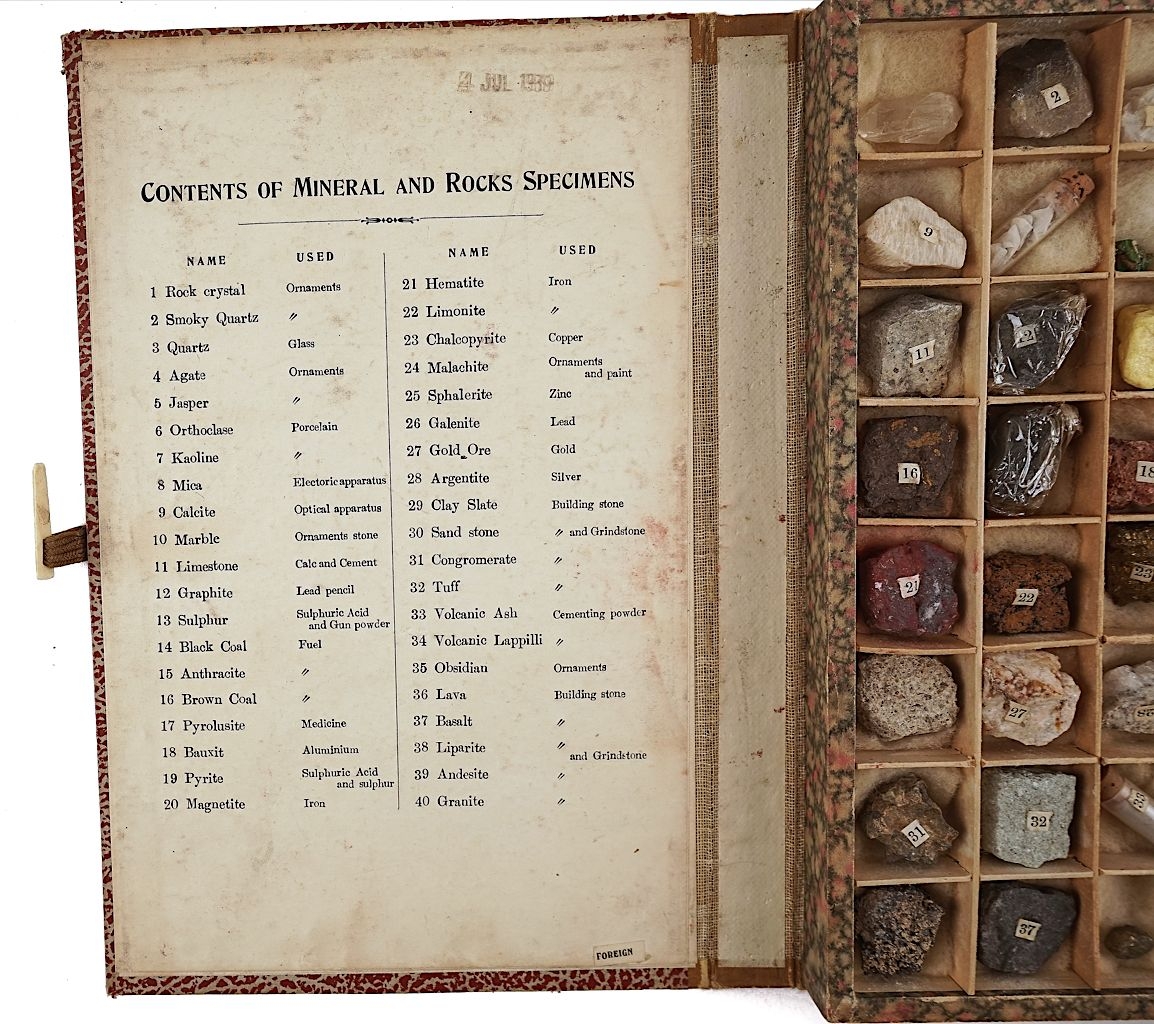 4 JUL 1939
CONTENTS OF MINERAL AND ROCKS SPECIMENS
NAME USED
1 Rock crystal Ornaments
2 Smoky Quartz 〃
3 Quartz Glass
4 Agate Ornaments
5 Jasper 〃
6 Orthoclase Porcelain
7 Kaoline 〃
8 Mica Electoric apparatus
9 Calcite Optical apparatus
10 Marble Ornaments stone
11 Limestone Calc and Cement
12 Graphite Lead pencil
13 Sulphur Sulphuric Acid
and Gun powder
14 Black Coal Fuel
15 Anthracite 〃
16 Brown Coal 〃
17 Pyrolusite Medicine
18 Bauxit Aluminium
19 Pyrite Sulphuric Acid
and sulphur
20 Magnetite Iron
NAME USED
21 Hematite Iron
22 Limonite 〃
23 Chalcopyrite Copper
24 Malachite Ornaments
and paint
25 Sphalerite Zinc
26 Galenite Lead
27 Gold Ore Gold
28 Argentite Silver
29 Clay Slate Building stone
30 Sand stone 〃 and Grindstone
31 Congromerate 〃
32 Tuff 〃
33 Volcanic Ash Cementing powder
34 Volcanic Lappilli 〃
35 Obsidian Ornaments
36 Lava Building stone
37 Basalt 〃
38 Liparite 〃
and Grindstone
39 Andesite 〃
40 Granite 〃
FOREIGN
2
9
11
12
16
18
21
22
23
27
28
31
32
33
37